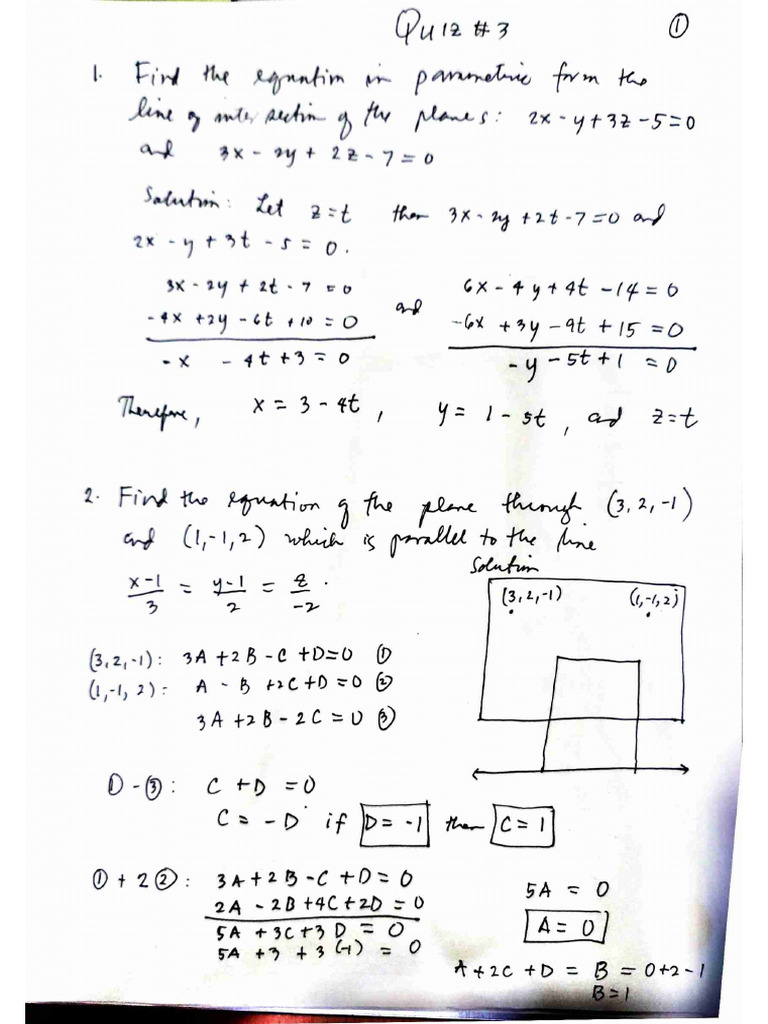 Quiz #3 ①
1. Find the equation in parametric form the
line of intersection of the planes: 2x - y + 3z - 5 = 0
and 3x - 2y + 2z - 7 = 0
Solution: Let z = t then 3x - 2y + 2t - 7 = 0 and
2x - y + 3t - 5 = 0.
3x - 2y + 2t - 7 = 0 and 6x - 4y + 4t - 14 = 0
-4x + 2y - 6t + 10 = 0 -6x + 3y - 9t + 15 = 0
-x - 4t + 3 = 0 -y - 5t + 1 = 0
Therefore, x = 3 - 4t, y = 1 - 5t, and z = t
2. Find the equation of the plane through (3, 2, -1)
and (1, -1, 2) which is parallel to the line
x-1/3 = y-1/2 = z/-2.
Solution
(3, 2, -1) (1, -1, 2)
(3, 2, -1): 3A + 2B - C + D = 0 ①
(1, -1, 2): A - B + 2C + D = 0 ②
3A + 2B - 2C = 0 ③
① - ③: C + D = 0
C = -D if D = -1 then C = 1
① + 2②: 3A + 2B - C + D = 0
2A - 2B + 4C + 2D = 0
5A + 3C + 3D = 0
5A + 3 + 3(-1) = 0
5A = 0
A = 0
A + 2C + D = B = 0 + 2 - 1
B = 1